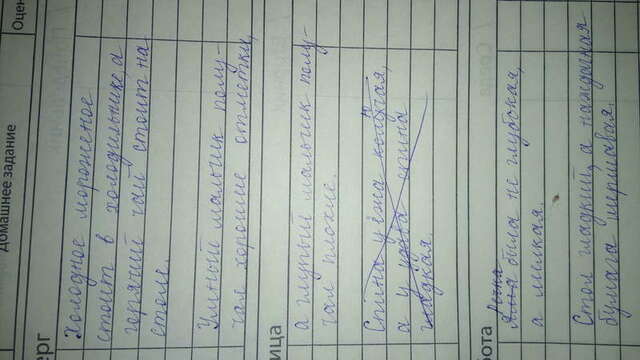 Домашнее задание
Оцен
ерг
Холодное мороженое
стоит в холодильнике а
горячий чай стоит на
столе.
Умный мальчик полу-
чал хорошие отметки,
ица
а глупый мальчик полу-
чал плохие.
Спина у ежа
а у спина
гладкая.
бота
Речка
была не глубокая,
а мелкая.
Стол гладкий, а наждачная
бумага шершавая.